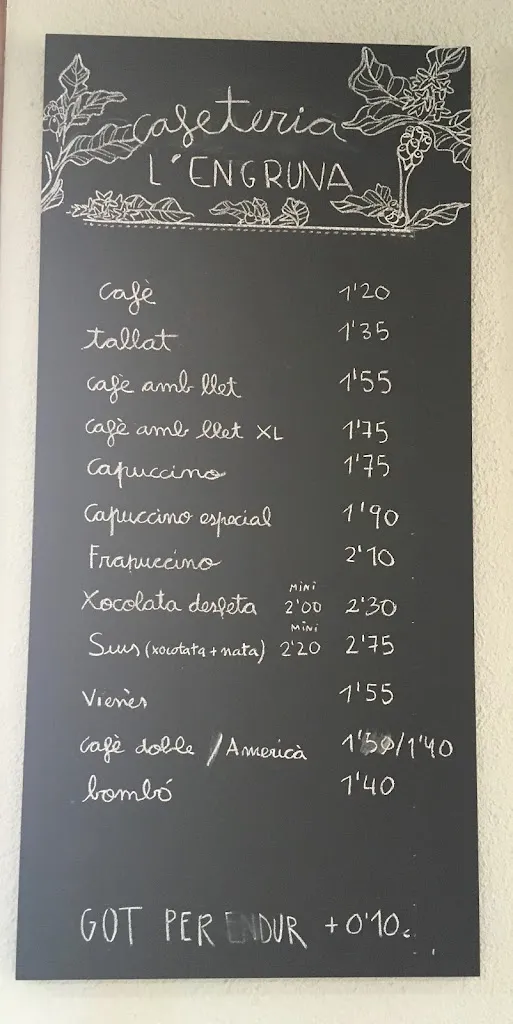 cafeteria
L'ENGRUNA
Cafè 1'20
tallat 1'35
cafè amb llet 1'55
cafè amb llet XL 1'75
Capuccino 1'75
Capuccino especial 1'90
Frapuccino 2'10
Xocolata desfeta MINI 2'00 2'30
Suís (xocolata + nata) MINI 2'20 2'75
Vienès 1'55
cafè doble / Americà 1'50/1'40
bombó 1'40
GOT PER ENDUR +0'10